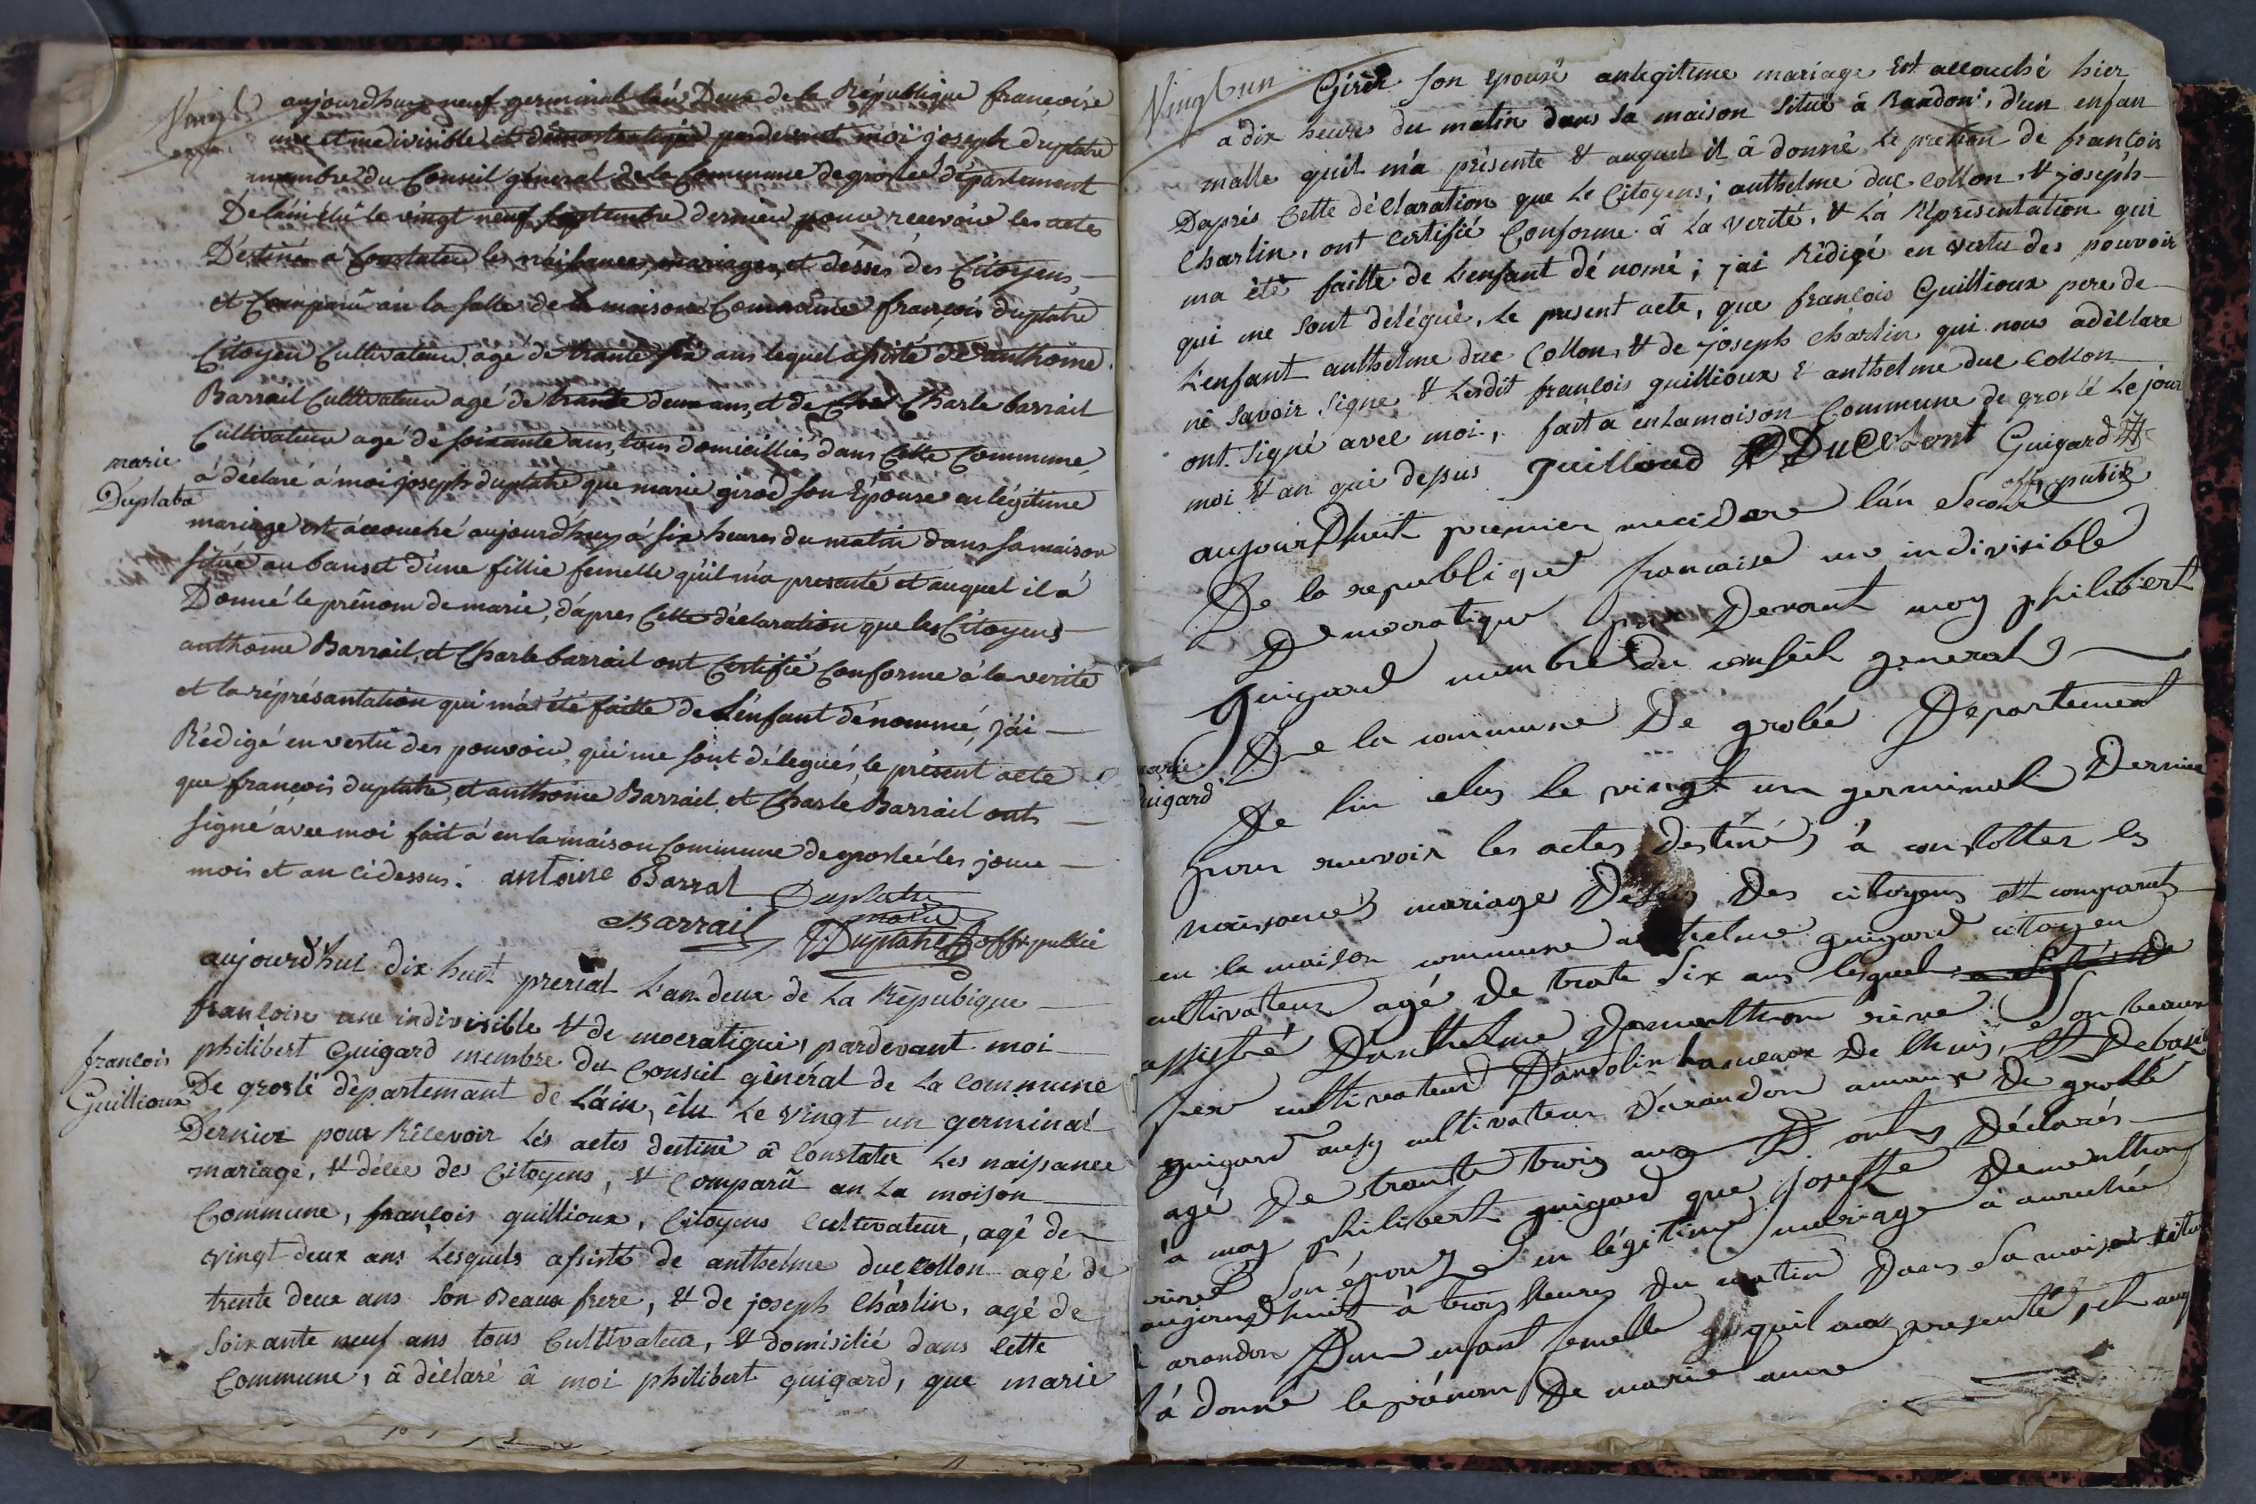 Vingt
aujourdhuy neuf germinal l'an Deux de la République françoise
une et indivisible et démocratique pardevant moi joseph duplatre
membre du Conseil général de la Commune de groslée département
De l'ain élu le vingt neuf septembre dernier pour recevoir les actes
Destiné a Constater les naissances, mariages, et dessés des Citoyens,
et Comparû an la salle de la maison Commune françois duplatre
Citoyen Cultivateur agé de trante six ans lequel assisté de anthoine
Barrail Cultivateur agé de trante deux ans, et de Charle barrail
Cultivateur agé de soixante ans, tous domicilliés dans Cette Commune,
marie
Duplatre
à déclaré á moi joseph duplatre que marie girod son Epouse an légitime
mariage est áccouché aujourd'huy á six heures du matin dans sa maison
située au banset d'une fillie femelle qu'il m'a presanté et auquel il a
Donné le prénom de marie, d'apres Cette déclaration que les Citoyens
anthoine Barrail, et Charle barrail ont Certifié Conforme á la verité
et la réprésantation qui m'a été faitte de L'enfant dénommé, j'ai
Rédigé en vertu des pouvoir, qui me sont délegués, le présent acte
que françois duplatre, et anthoine Barrail, et Charle Barrail ont
signé avec moi fait á en la maison Commune de groslée les jour
mois et an cidessus. antoine Barral
Duplatre
Barrail
Duplatre offi publie
aujourd'hui dix huit prerial L'an deux de La Répubique
francoise une indivisible & de mocratiqui, pardevant moi
francois
Guillioux
philibert Guigard membre du Conseil général de La Commune
De groslé départemant de L'ain, élu Le vingt un germinal
Dernier pour Récevoir Lés actes destiné â Constater Les naissance
mariage, & décée des Citoyens, & Comparû an La moison
Commune, françois guillioux, Citoyens Cultivateur, agé de
vingt deux ans Lesquels assisté de anthelme duc collon agé de
trente deux ans son Beaux frere, & de joseph Charlin, agé de
soixante neuf ans tous Cultivateur, & domisilié dans Cette
Commune, â déclaré â moi philibert guigard, que marie
Vingt un
Girer son Epouse anlegitime mariage Est accouché hier
a dix heures du matin dans sa maison situé â Randon, d'un enfan
malle quil m'a présente & auquel il â donné Le prenon de francois
Daprés Cette déclaration que Le Citoyens; anthelme duc collon & joseph
Charlin, ont Certifié Conforme â La verité, & La Réprésentation qui
ma été faitte de Lenfant dé nomé; jai Rédigé en vertu des pouvoir
qui me sont délégué, Le present acte, que francois Guillioux pere de
L'enfant anthelme duc Collon, & de joseph charlin qui nous adéclare
né savoir signe & Lesdit francois guillioux & anthelme duc Collon
ont signé avec moi, fait a en La maison Commune de groslé Le jour
moi & an qui dessus Guillioud Guigard
offi publie
aujourdhuit premier mecidore l'an second
De la republique francaise un indivisible
Democratique par Devant moy philibert
Guigard membre du conseil general
De la commune De grolée Departement
marie
guigard
De lin elus le vingt un germinal Dernier
pour recevoir les actes destinés à constotter les
naissances mariage Desais Des citoyens et comparut
en la maison commune anthelme guigard citoyen
cultivateur agé de trante six ans lesquel
assisté D'anthelme Dementhon
cultivateur D'arolin hameaux De Lhuis, Son beaux
guigard aussy cultivateur D'arandon amaux De grollé
agé De trante trois ans ont Déclarés
a moy philibert guigard que josepte Dementhon
son épouze en légitime mariage à accuchée
aujourdhuit à trois heures Du matin Dans sa maison situé
arandon D'un enfant femelle quil ma presenté et auq
à donné le prénom De marie anne